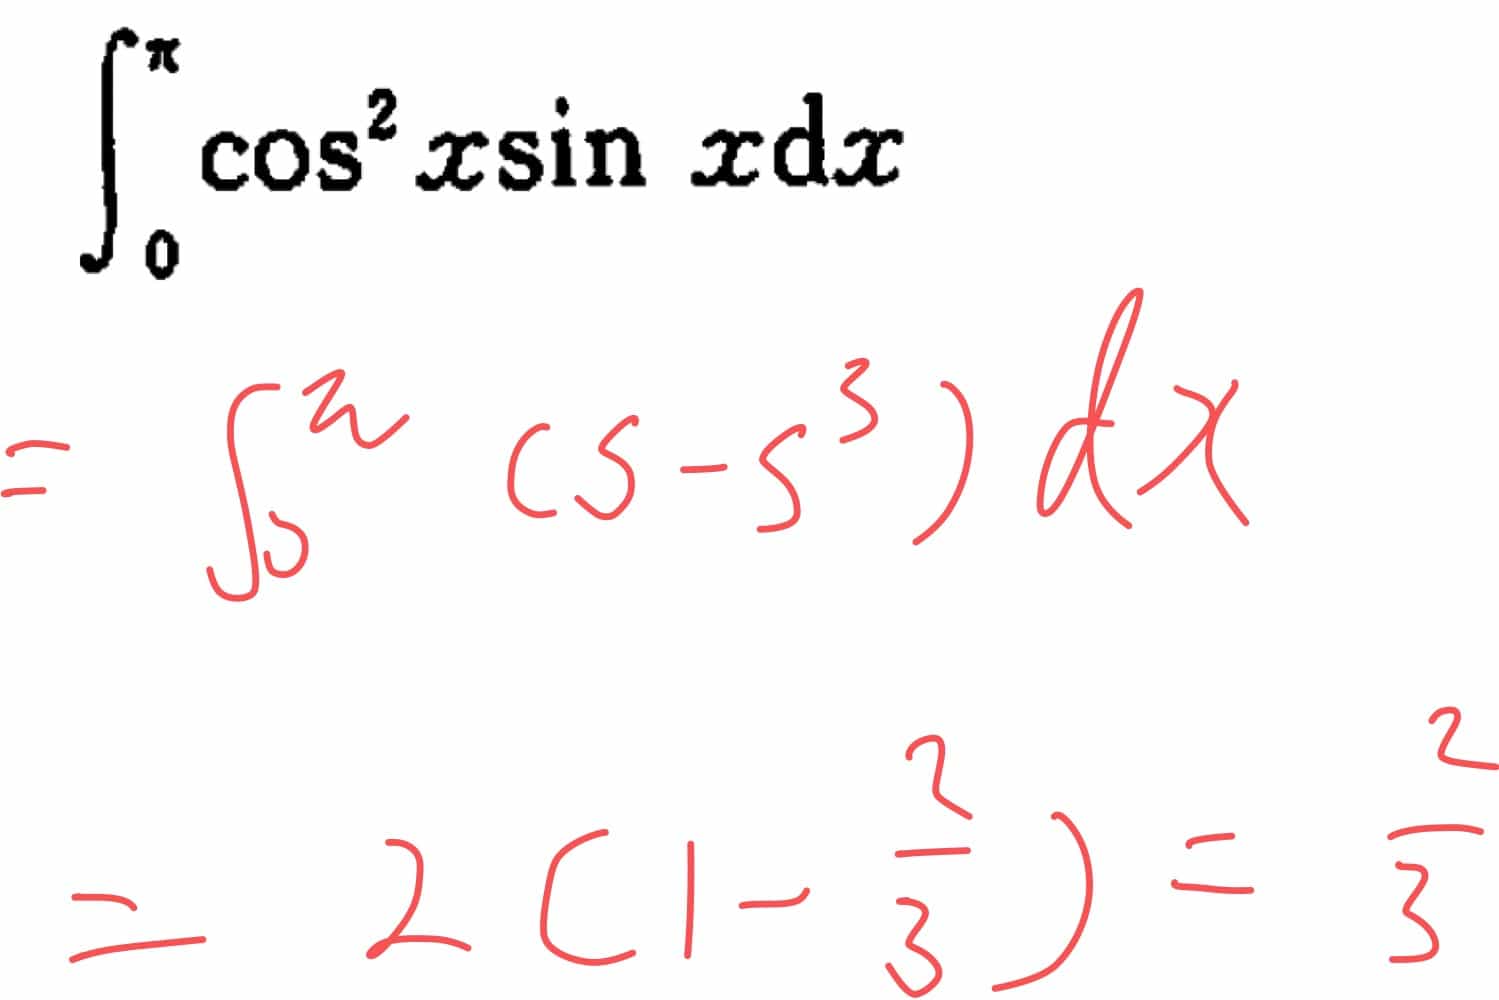 ∫₀^π cos² x sin x dx
= ∫₀^π (s - s³) dx
= 2 (1 - 2/3) = 2/3